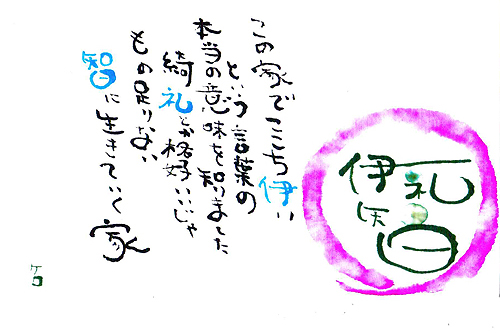 伊礼
智
この家でここち伊い
という言葉の
本当の意味を知りました
綺礼とか格好いいじゃ
もの足りない
智に生きていく家
ケロ